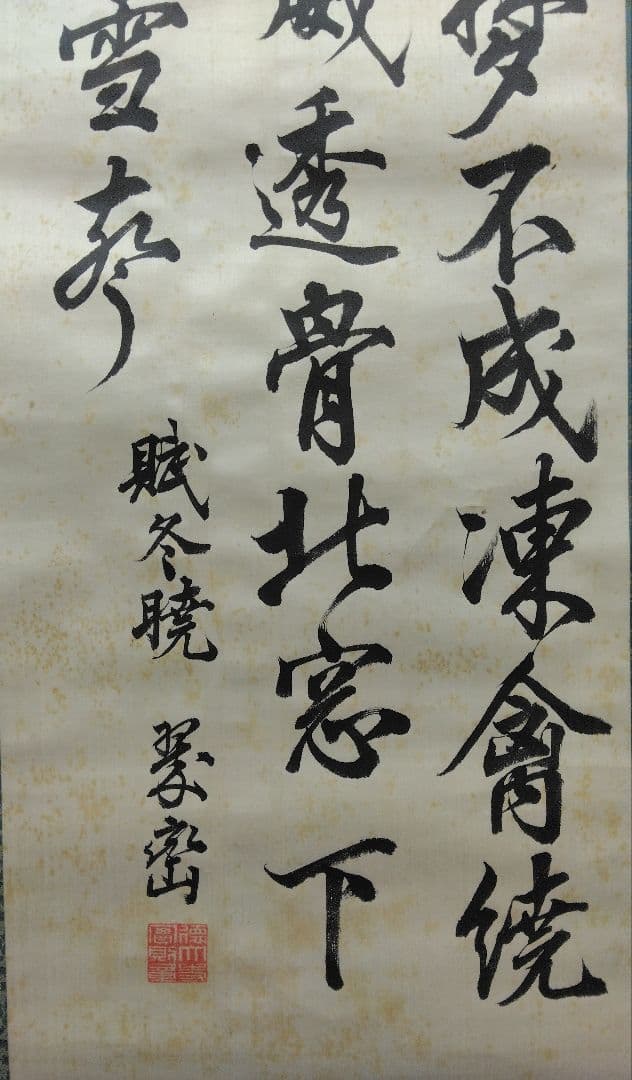 夢不成凍禽繞
威透骨北窓下
雪声
賦冬暁
翠巒